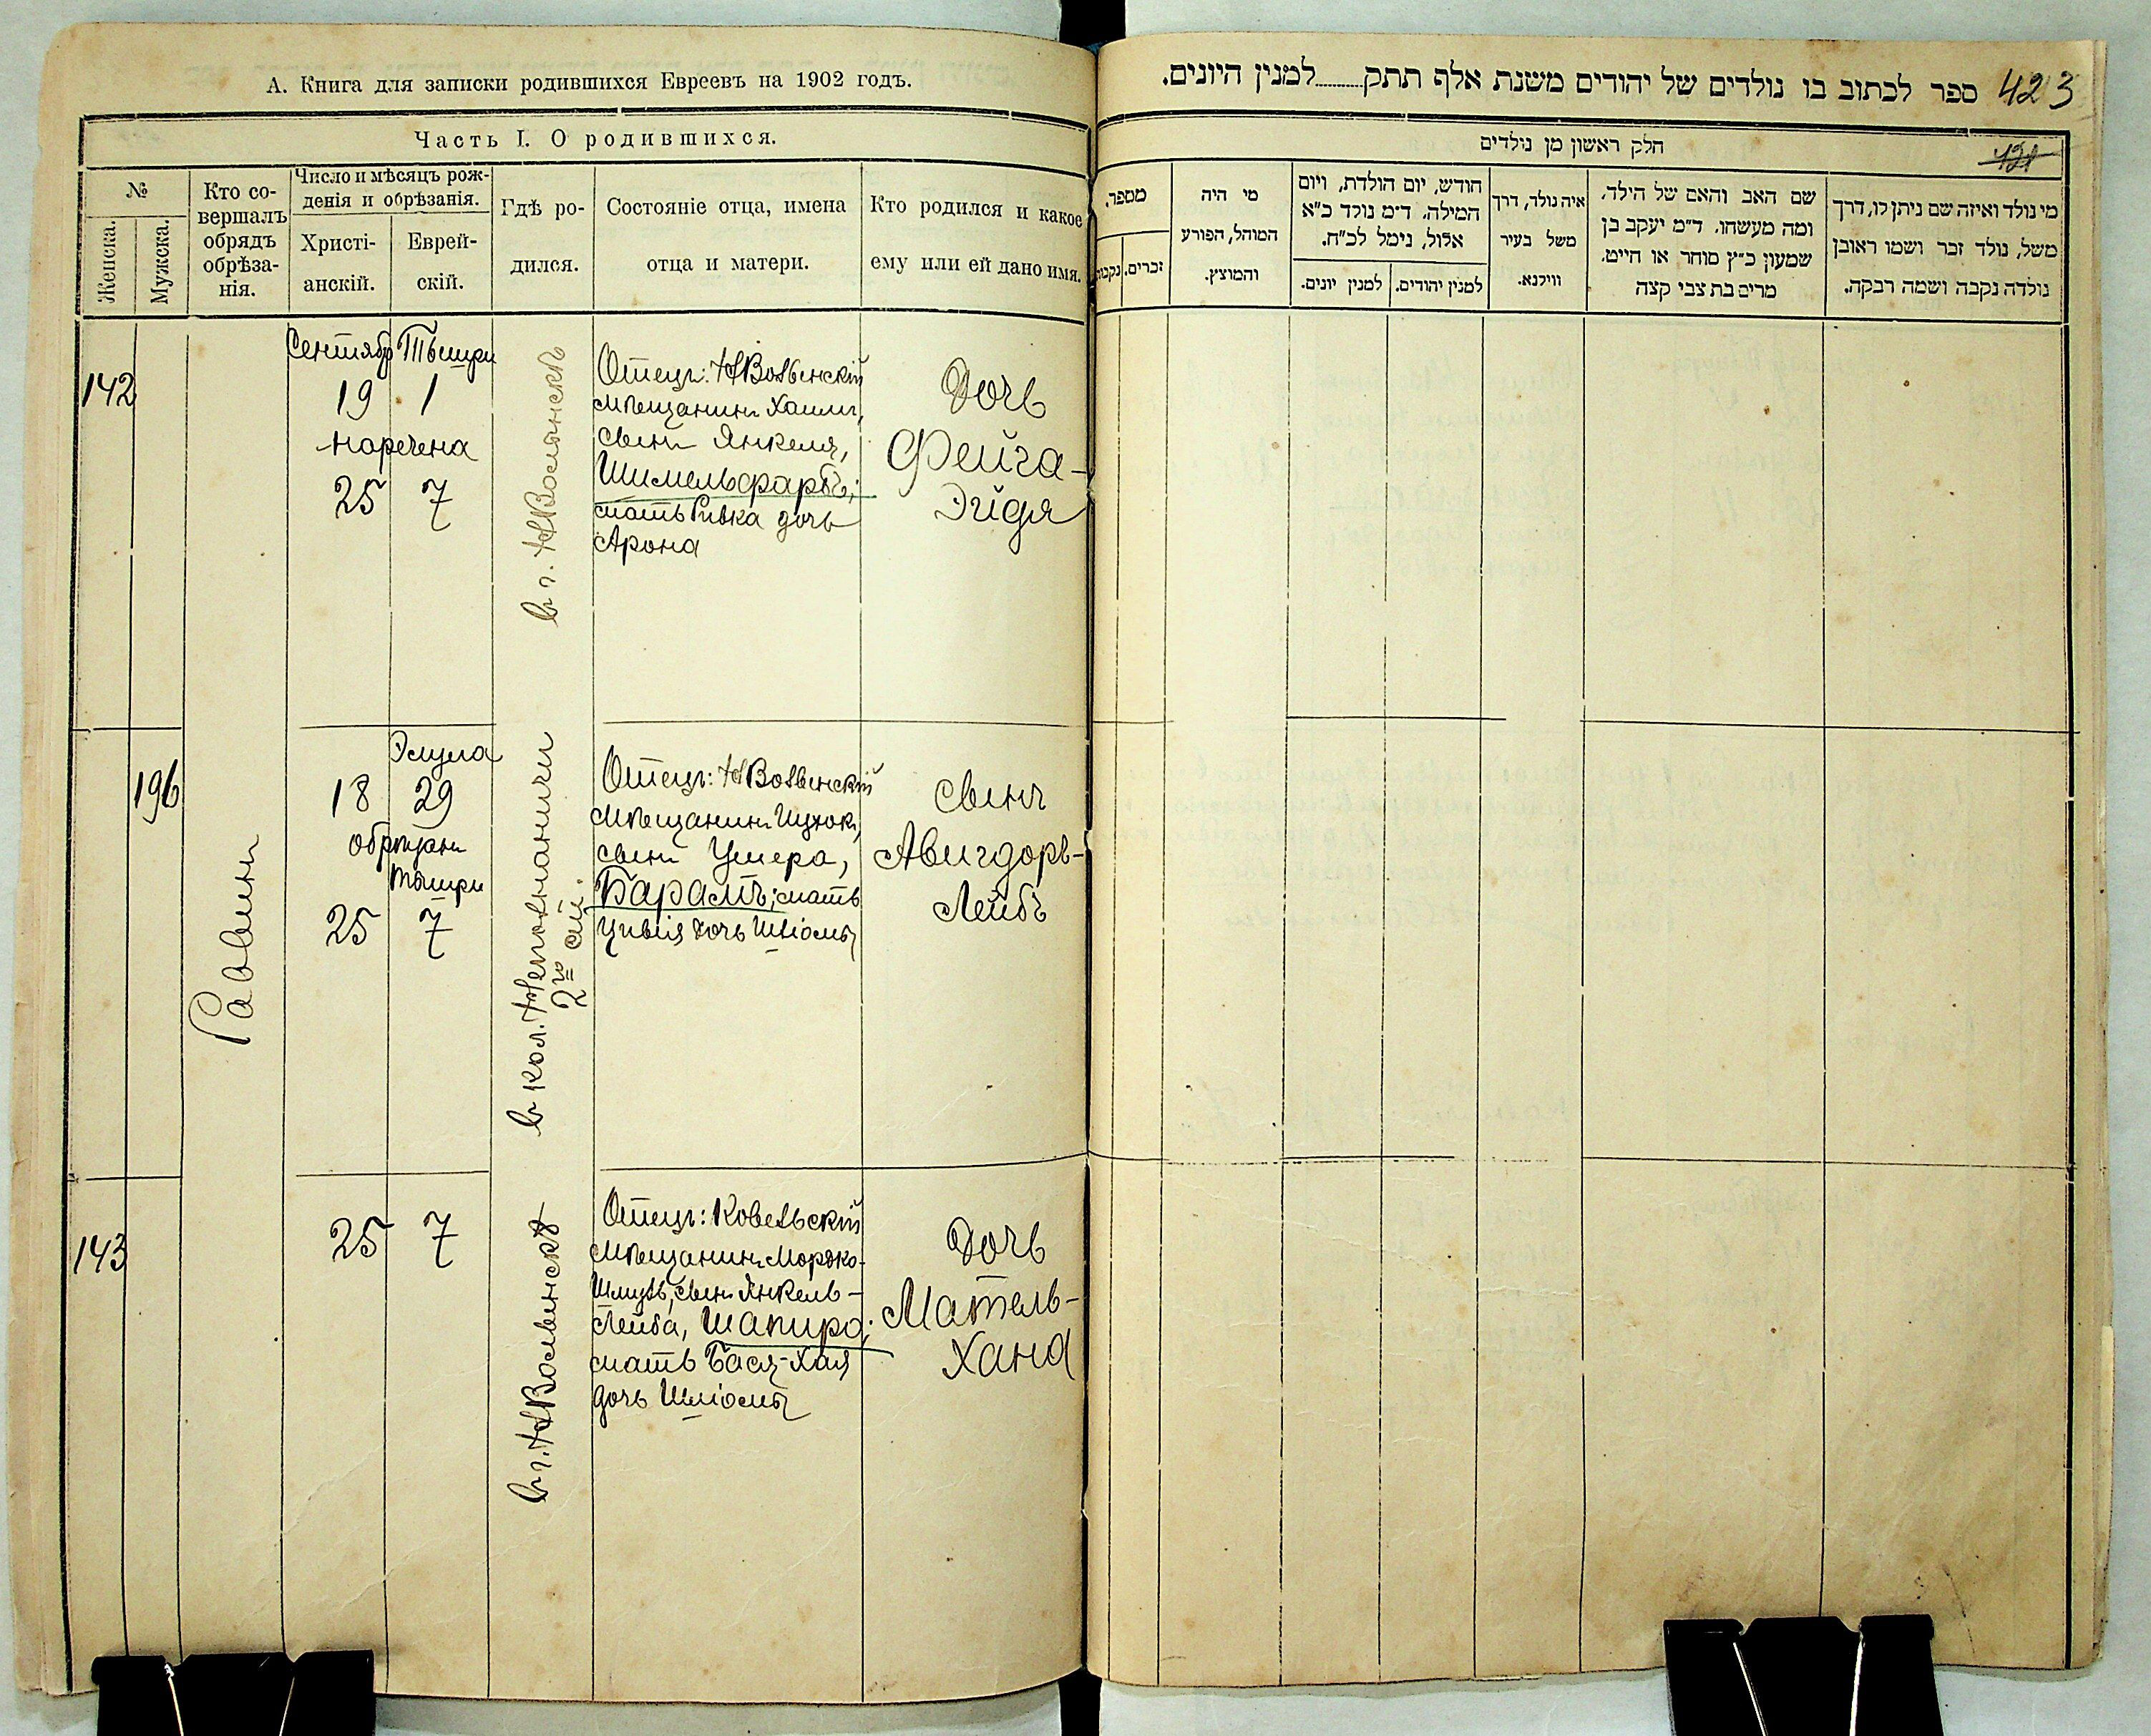 А. Книга для записки родившихся Евреевъ на 1902 годъ.
Часть I. О родившихся.
№
Женска.
Мужска.
Кто со-
вершалъ
обрядъ
обрѣза-
нія.
Число и мѣсяцъ рож-
денія и обрѣзанія.
Христі-
анскій.
Еврей-
скій.
Гдѣ ро-
дился.
Состояніе отца, имена
отца и матери.
Кто родился и какое
ему или ей дано имя.
142
Раввинъ
Сентябр Тышри
19 1
наречена
25 7
въ г. НВолынскѣ
Отецъ: НВолынскій
мѣщанинъ Хаимъ,
сынъ Янкеля,
Шимельфарбъ;
мать Ривка дочь
Арона
Дочь
Фейга-
Эйдя
196
Элула
18 29
обрѣзанъ
Тышри
25 7
въ кол. Неполнаничи
2го
Отецъ: НВолынскій
мѣщанинъ Ицхокъ,
сынъ Ушера,
Барамъ; мать
Цивія дочь Шліомы
сынъ
Авигдоръ-
Лейбъ
143
25 7
въ г. НВолынскѣ
Отецъ: Ковельскій
мѣщанинъ Мордко-
Шмулъ, сынъ Янкель-
Лейба, Шапиро;
мать Бася-Хая
дочь Шліомы
Дочь
Матель-
Хана
ספר לכתוב בו נולדים של יהודים משנת אלף תתק.........למנין היונים.
423
חלק ראשון מן נולדים
421
מספר.
נקבות
זכרים.
מי היה
המוהל, הפורע
והמוצץ.
חודש, יום הולדת, ויום
המילה. ד״מ נולד כ״א
אלול, נימל לכ״ח.
למנין יונים.
למנין יהודים.
איה נולד, דרך
משל בעיר
ווילנא.
שם האב והאם של הילד,
ומה מעשהו. ד״מ יעקב בן
שמעון כ״ץ סוחר או חייט,
מרים בת צבי קצה
מי נולד ואיזה שם ניתן לו, דרך
משל, נולד זכר ושמו ראובן
נולדה נקבה ושמה רבקה.